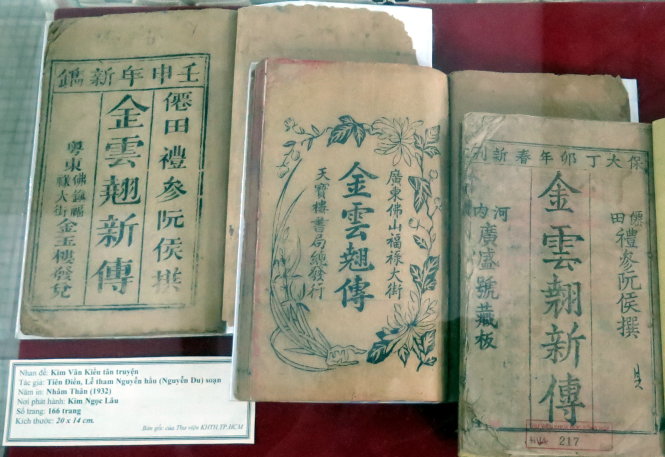 壬申年新鐫
僊田禮參阮侯撰
金雲翹新傳
粤東佛鎮福祿大街金玉樓發兌
廣東佛山福祿大街
金雲翹傳
天寶樓書局總發行
保大丁卯年春新刊
僊田禮參阮侯撰
金雲翹新傳
河内廣盛號藏板
217
Nhan đề: Kim Vân Kiều tân truyện
Tác giả: Tiên Điền, Lễ tham Nguyễn hầu (Nguyễn Du) soạn
Năm in: Nhâm Thân (1932)
Nơi phát hành: Kim Ngọc Lâu
Số trang: 166 trang
Kích thước: 20 x 14 cm.
Bản gốc của Thư viện KHTH.TP.HCM